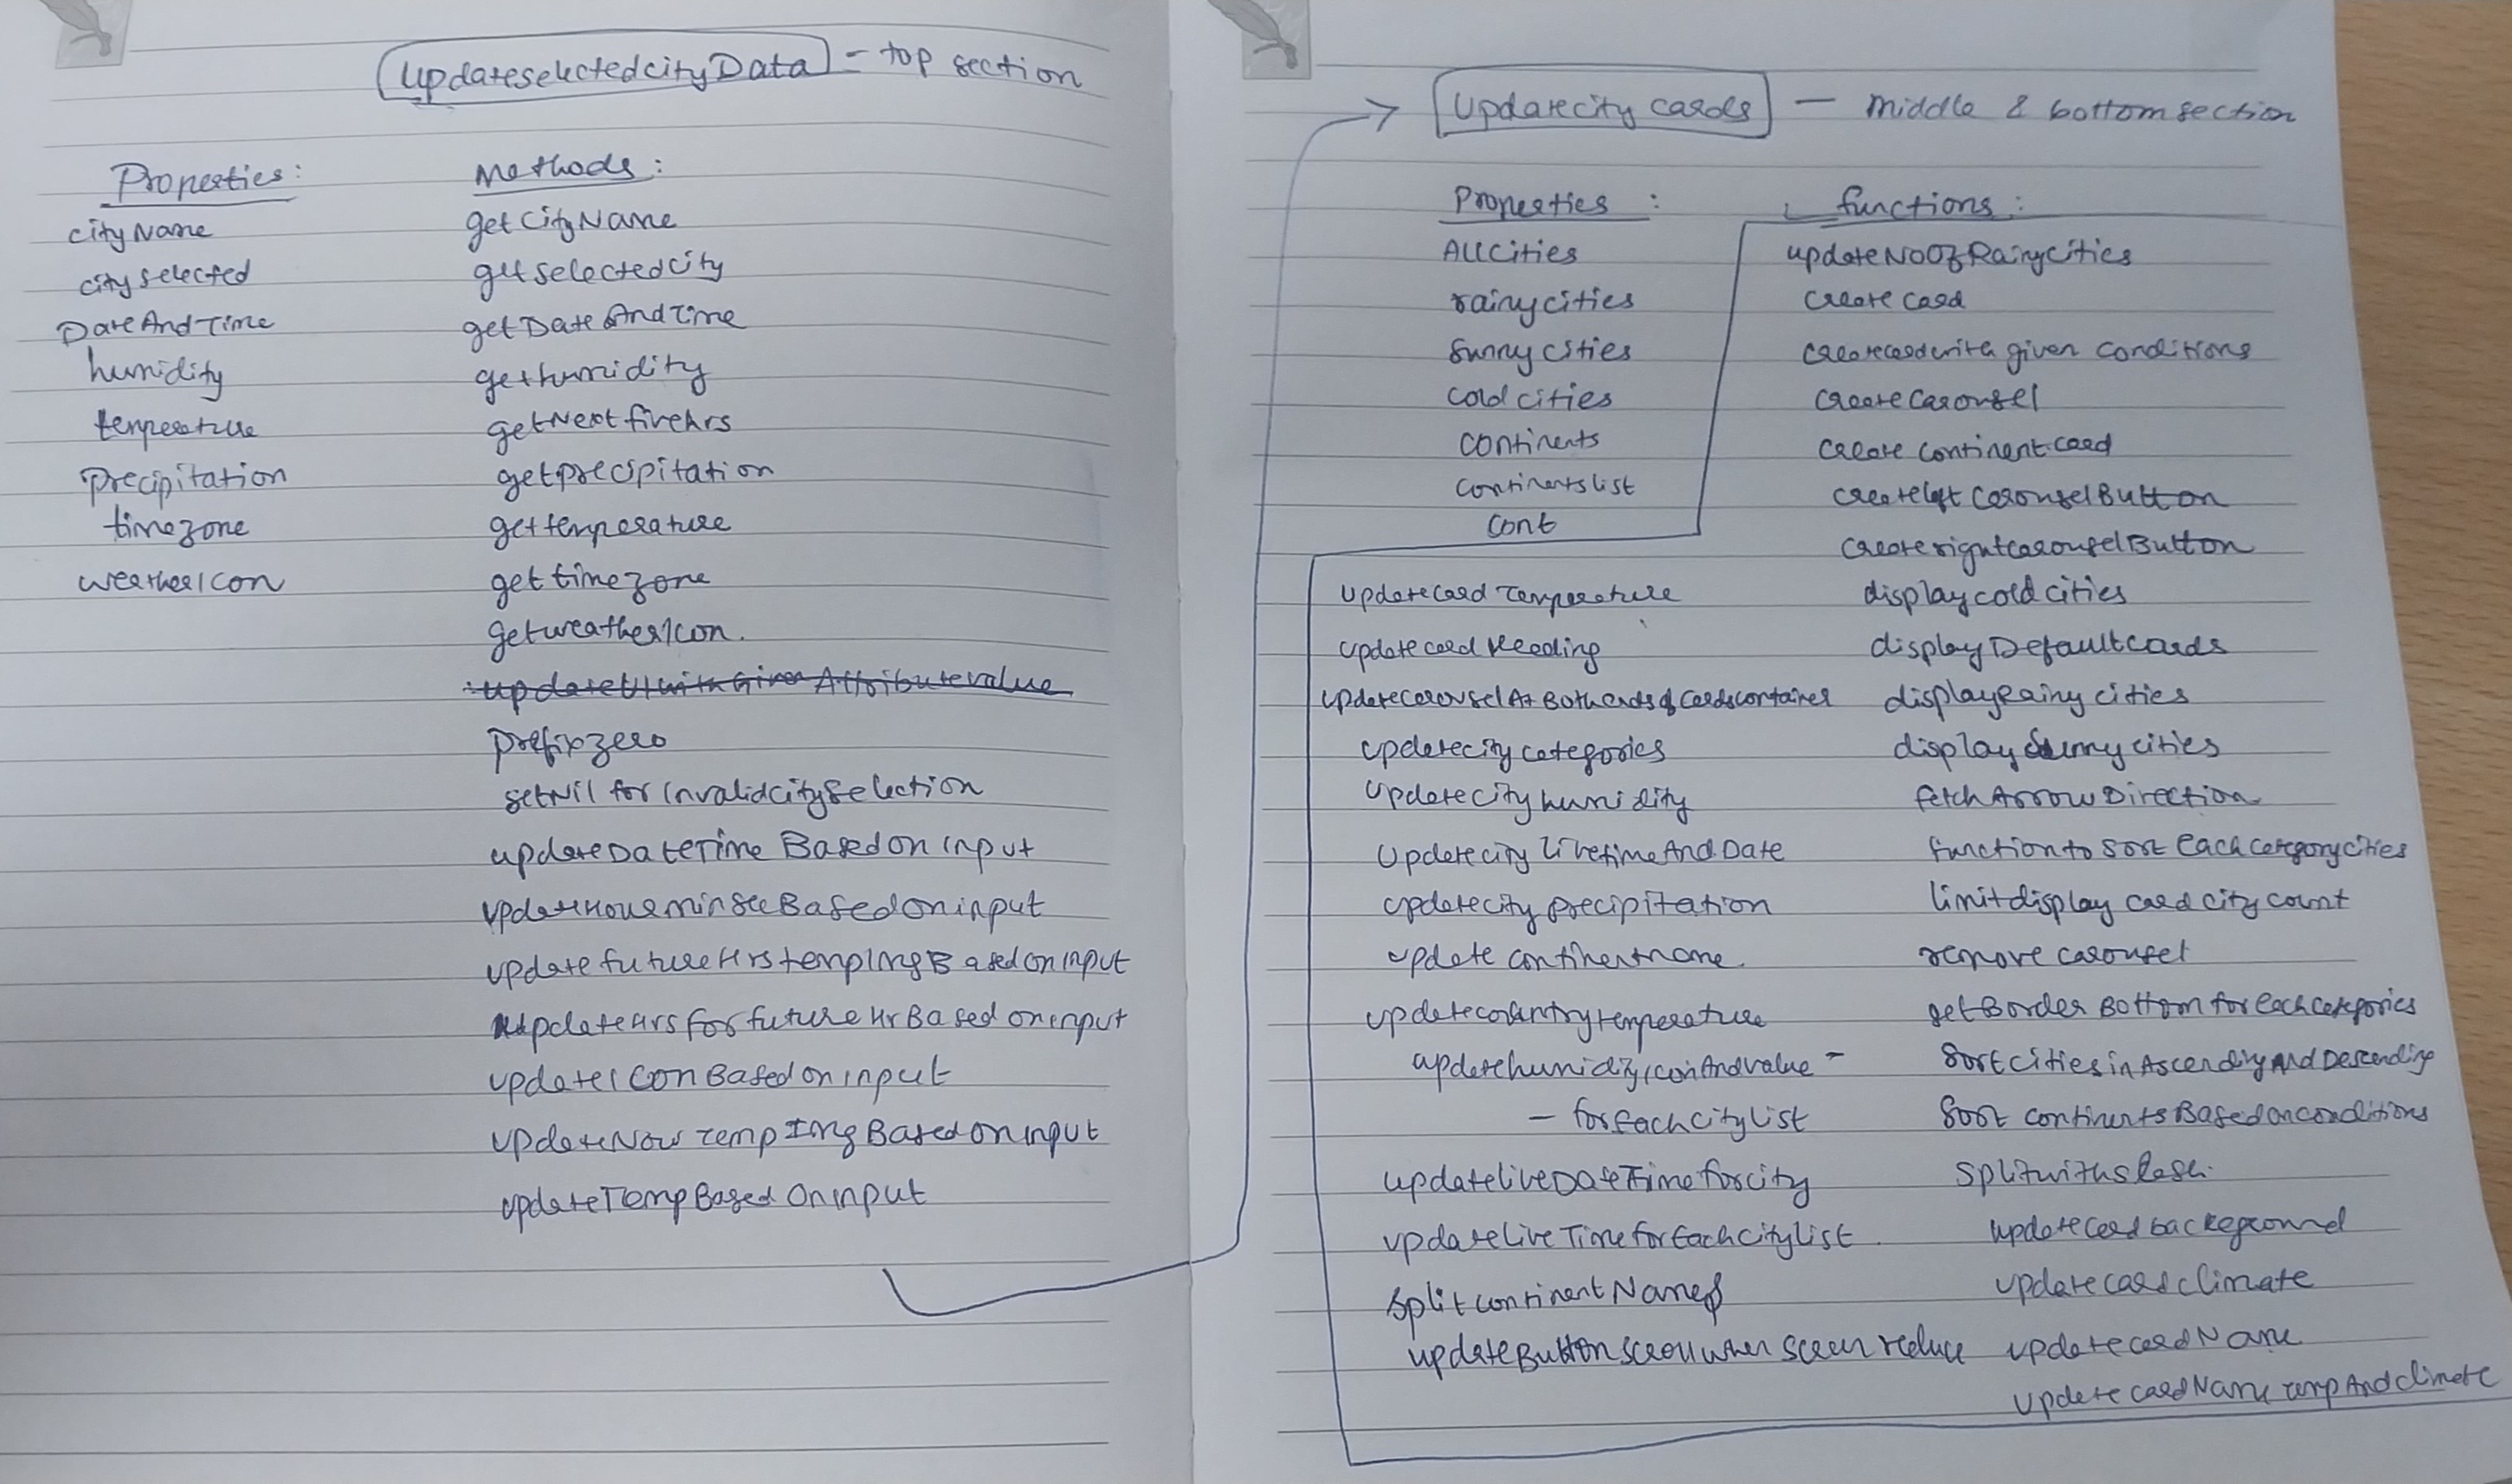 UpdateselectedcityData - top section
Properties:
cityName
cityselected
DateAndTime
humidity
temperature
Precipitation
timezone
weatherIcon
Methods:
getCityName
getselectedcity
getDateAndTime
gethumidity
getNextfivehrs
getprecipitation
gettemperature
gettimezone
getweatherIcon.
updateUIwithGivenAttributevalue
prefixzero
setNil for InvalidcitySelection
updateDateTime BasedonInput
updateHourminsecBasedoninput
updatefutureHrstempImgBasedonInput
updateHrsforfutureHrBasedoninput
updateIconBasedoninput
updateNowtempImgBasedonInput
updateTempBasedOnInput
Updatecity cards - middle & bottom section
Properties :
Allcities
rainycities
sunnycities
coldcities
continents
continentslist
cont
functions :
updateNoOfRainycities
create card
createcardwith given conditions
createcarousel
create continentcard
createleft CarouselButton
createrightcarouselButton
displaycoldcities
displayDefaultcards
displayRainy cities
displaysunnycities
fetchArrowDirection
functionto sort Eachcategorycities
limitdisplay card city count
remove carousel
getBorder Bottom forEachcategories
SortcitiesinAscendingAndDescending
Sort continentsBasedonconditions
splitwithslash.
updatecardbackground
updatecardclimate
updatecardName
updatecardNametempAndclimate
updatecardTemperature
updatecardHeading
updatecarouselAtBothendsofcardscontainer
updatecitycategories
updatecityhumidity
UpdatecitylivetimeAndDate
updatecityprecipitation
update continentname
updatecountrytemperature
updatehumidityiconAndvalue -
- forEachcitylist
updateliveDateTimeforcity
updateliveTimeforEachcitylist
splitcontinentName
updateButtonscrollwhen screen reduce